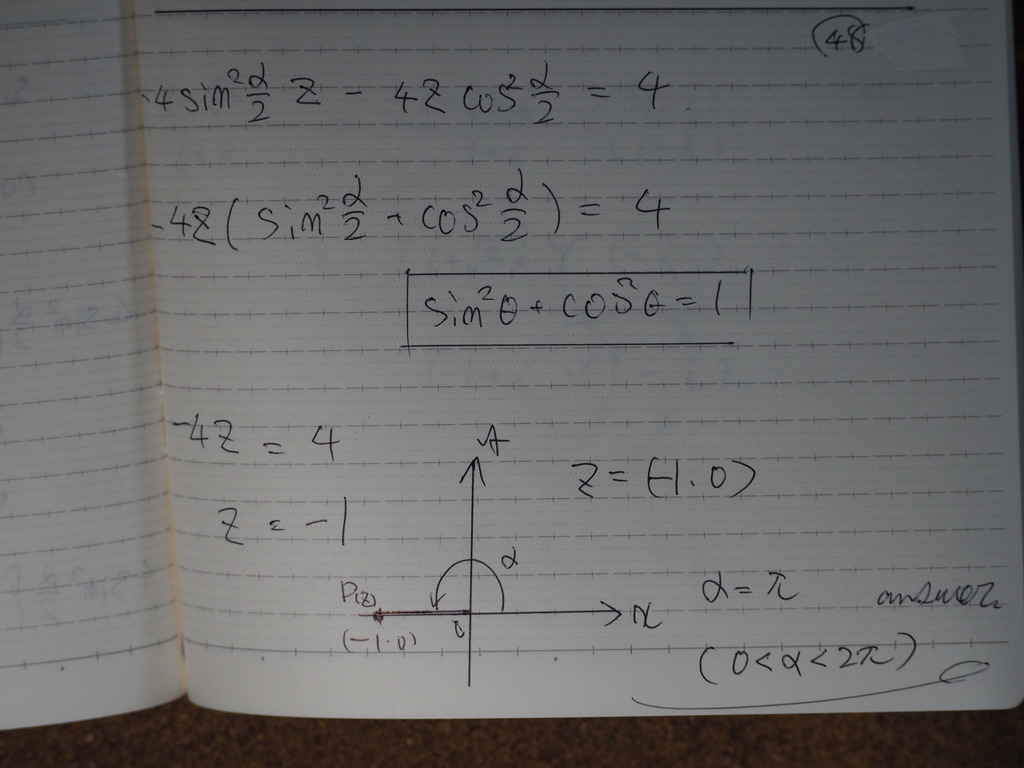 48
-4sin²α/2 z - 4z cos²α/2 = 4
-4z(sin²α/2 + cos²α/2) = 4
sin²θ + cos²θ = 1
-4z = 4
z = (-1.0)
z = -1
α
P(z)
(-1.0)
0
x
α = π answer
(0<α<2π)